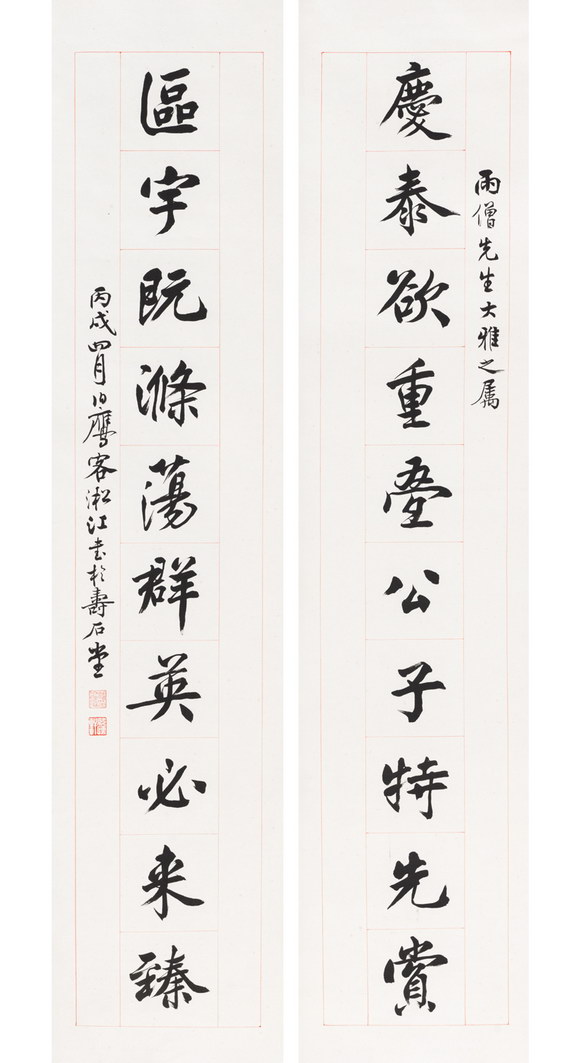 雨僧先生大雅之属
慶泰欲重疊公子特先賞
區宇既滌蕩群英必来臻
丙戌四月伯鷹客淞江書於壽石堂